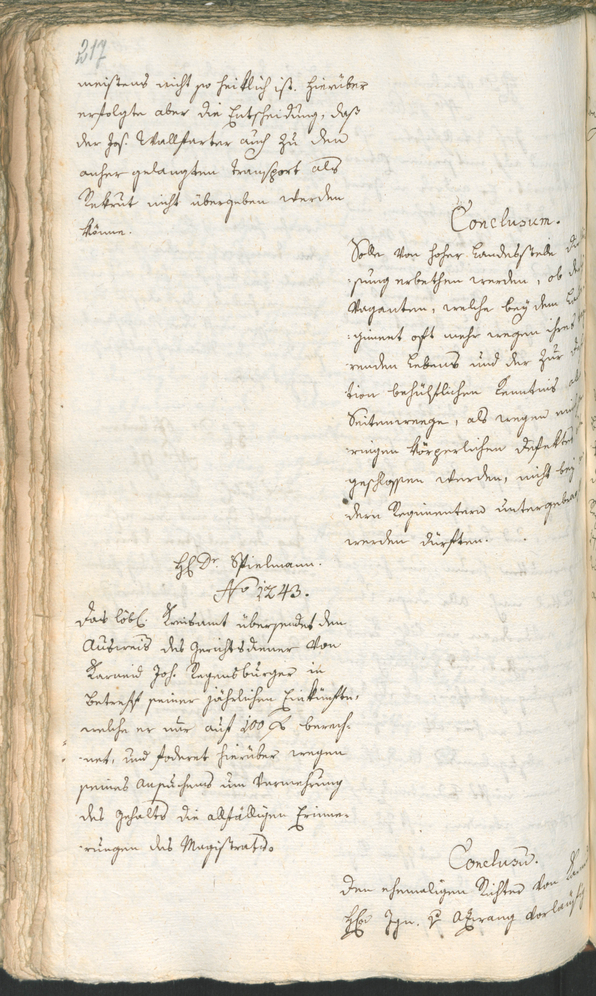 217
meistens nicht so heiklich ist. Hierüber
erfolgte aber die Entscheidung, daß
der Jos. Wallfarter auch zu dem
anher gelangten Transport als
Rekrut nicht übergeben werden
könne.
Conclusum.
Solle von hoher Landesstelle die
:sung erbethen werden, ob die
Vaganten, welche bey dem
:giment oft mehr wegen ihres
renden Lebens und der zur
tion behühflichen Kenntnis
Seitenweege, als wegen
ringen körperlichen Defekten
geschlossen werden, nicht bey
dern Regimentern untergebracht
werden dürften.
HE Dr. Spielmann.
No 1243.
Das löbl. Kreisamt übersendet den
Ausweis des Gerichtsdiener von
Karneid Joh. Regensburger in
Betreff seiner jährlichen Einkünfte,
welche er nur auf 100 f berech-
net, und foderet hierüber wegen
seines Ansuchens um Vermehrung
des Gehalts die allfälligen Erinne-
:rungen des Magistrats.
Conclusum.
Den ehemaligen Richter von
HE Ign. v Atzwang